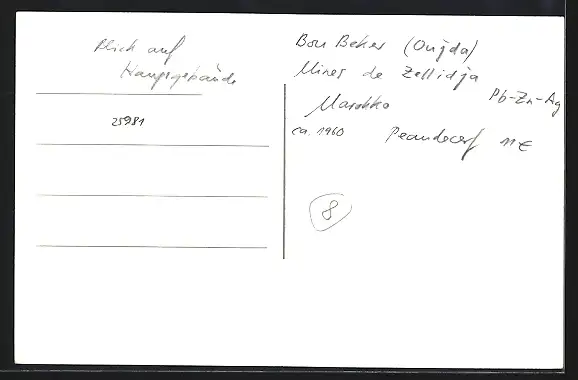 Blick auf
Hauptgebäude
25981
Bou Beker (Oujda)
Mines de Zellidja
Pb-Zn-Ag
Marokko
ca. 1960
11€
8